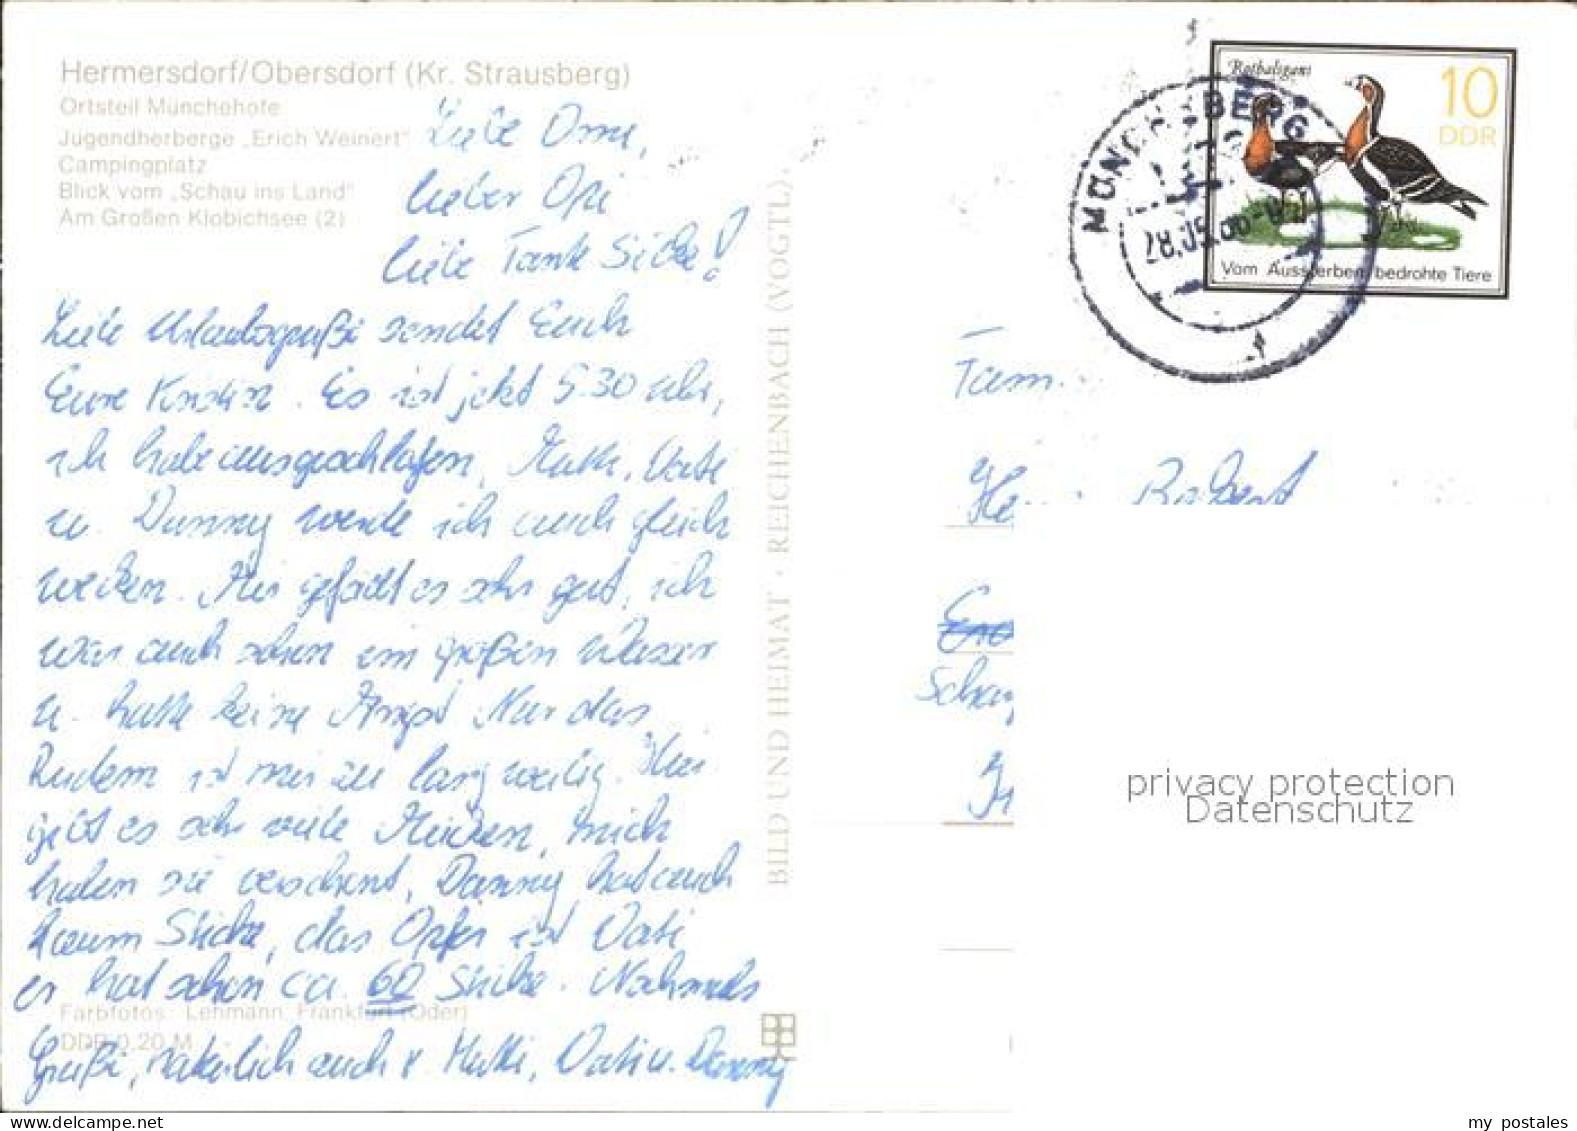 Hermersdorf/Obersdorf (Kr. Strausberg)
Ortsteil Münchehofe
Jugendherberge „Erich Weinert"
Campingplatz
Blick vom „Schau ins Land"
Am Großen Klobichsee (2)
Liebe Oma,
lieber Opi
liebe Tante Silke!
Liebe Urlaubsgrüße sendet Euch
Eure Kristin. Es ist jetzt 5.30 Uhr,
ich habe ausgeschlafen, Mutti, Vati
u. Danny werde ich auch gleich
wecken. Mir gefällt es sehr gut, ich
war auch schon im großen Wasser
u. hatte keine Angst. Nur das
Rudern ist mir zu langweilig. Hier
gibt es sehr viele Mücken, mich
haben sie verschont, Danny hat auch
kaum Stiche, das Opfer ist Vati
er hat schon ca. 60 Stiche. Nochmals
Grüße, natürlich auch v. Mutti, Vati u. Danny
Farbfotos: Lehmann, Frankfurt (Oder)
DDR 0,20 M
BILD UND HEIMAT · REICHENBACH (VOGTL).
Rothalsgans
10
DDR
Vom Aussterben bedrohte Tiere
MÜNCHEBERG
28.05.86
Fam.
He Robert
Scha
privacy protection
Datenschutz
my postales